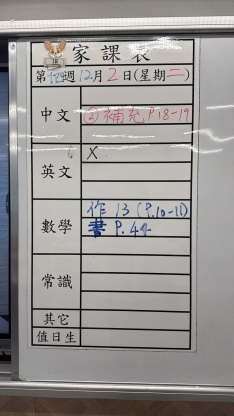 家課表
第14週12月2日(星期二)
中文
② 補充 P.18-19
英文
X
數學
作 13 (P.10-11)
書 P.44
常識
其它
值日生